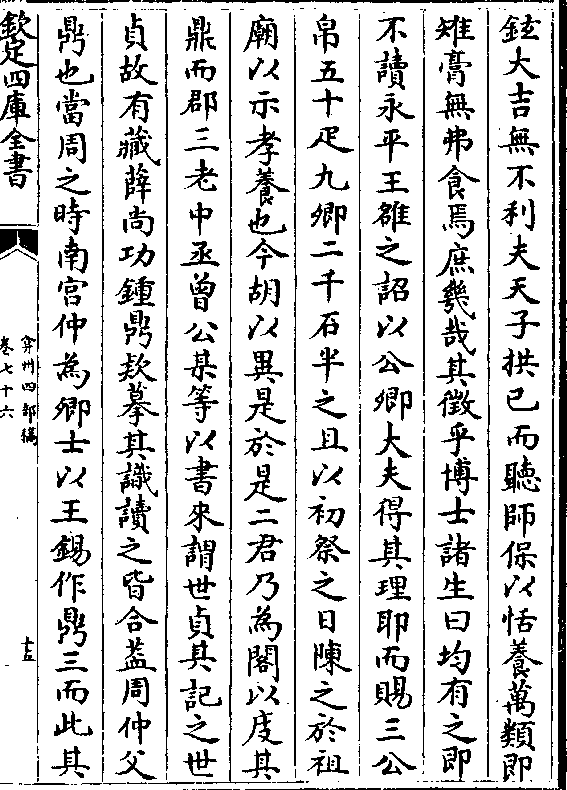 鉉大吉無不利夫天子拱已而聽師保以恬養萬類即
雉膏無弗食焉庶幾哉其徵乎博士諸生曰均有之即
不讀永平王雒之詔以公卿大夫得其理耶而賜三公
帛五十疋九卿二千石半之且以初祭之日陳之於祖
廟以示孝養也今胡以異是於是二君乃為閣以庋其
鼎而郡三老中丞曾公某等以書來謂世貞其記之世
貞故有藏薛尚功鍾鼎欵摹其識讀之皆合葢周仲父
鼎也當周之時南宫仲為卿士以王錫作鼎三而此其
欽定四庫全書
弇州四部稿
卷七十六
十五